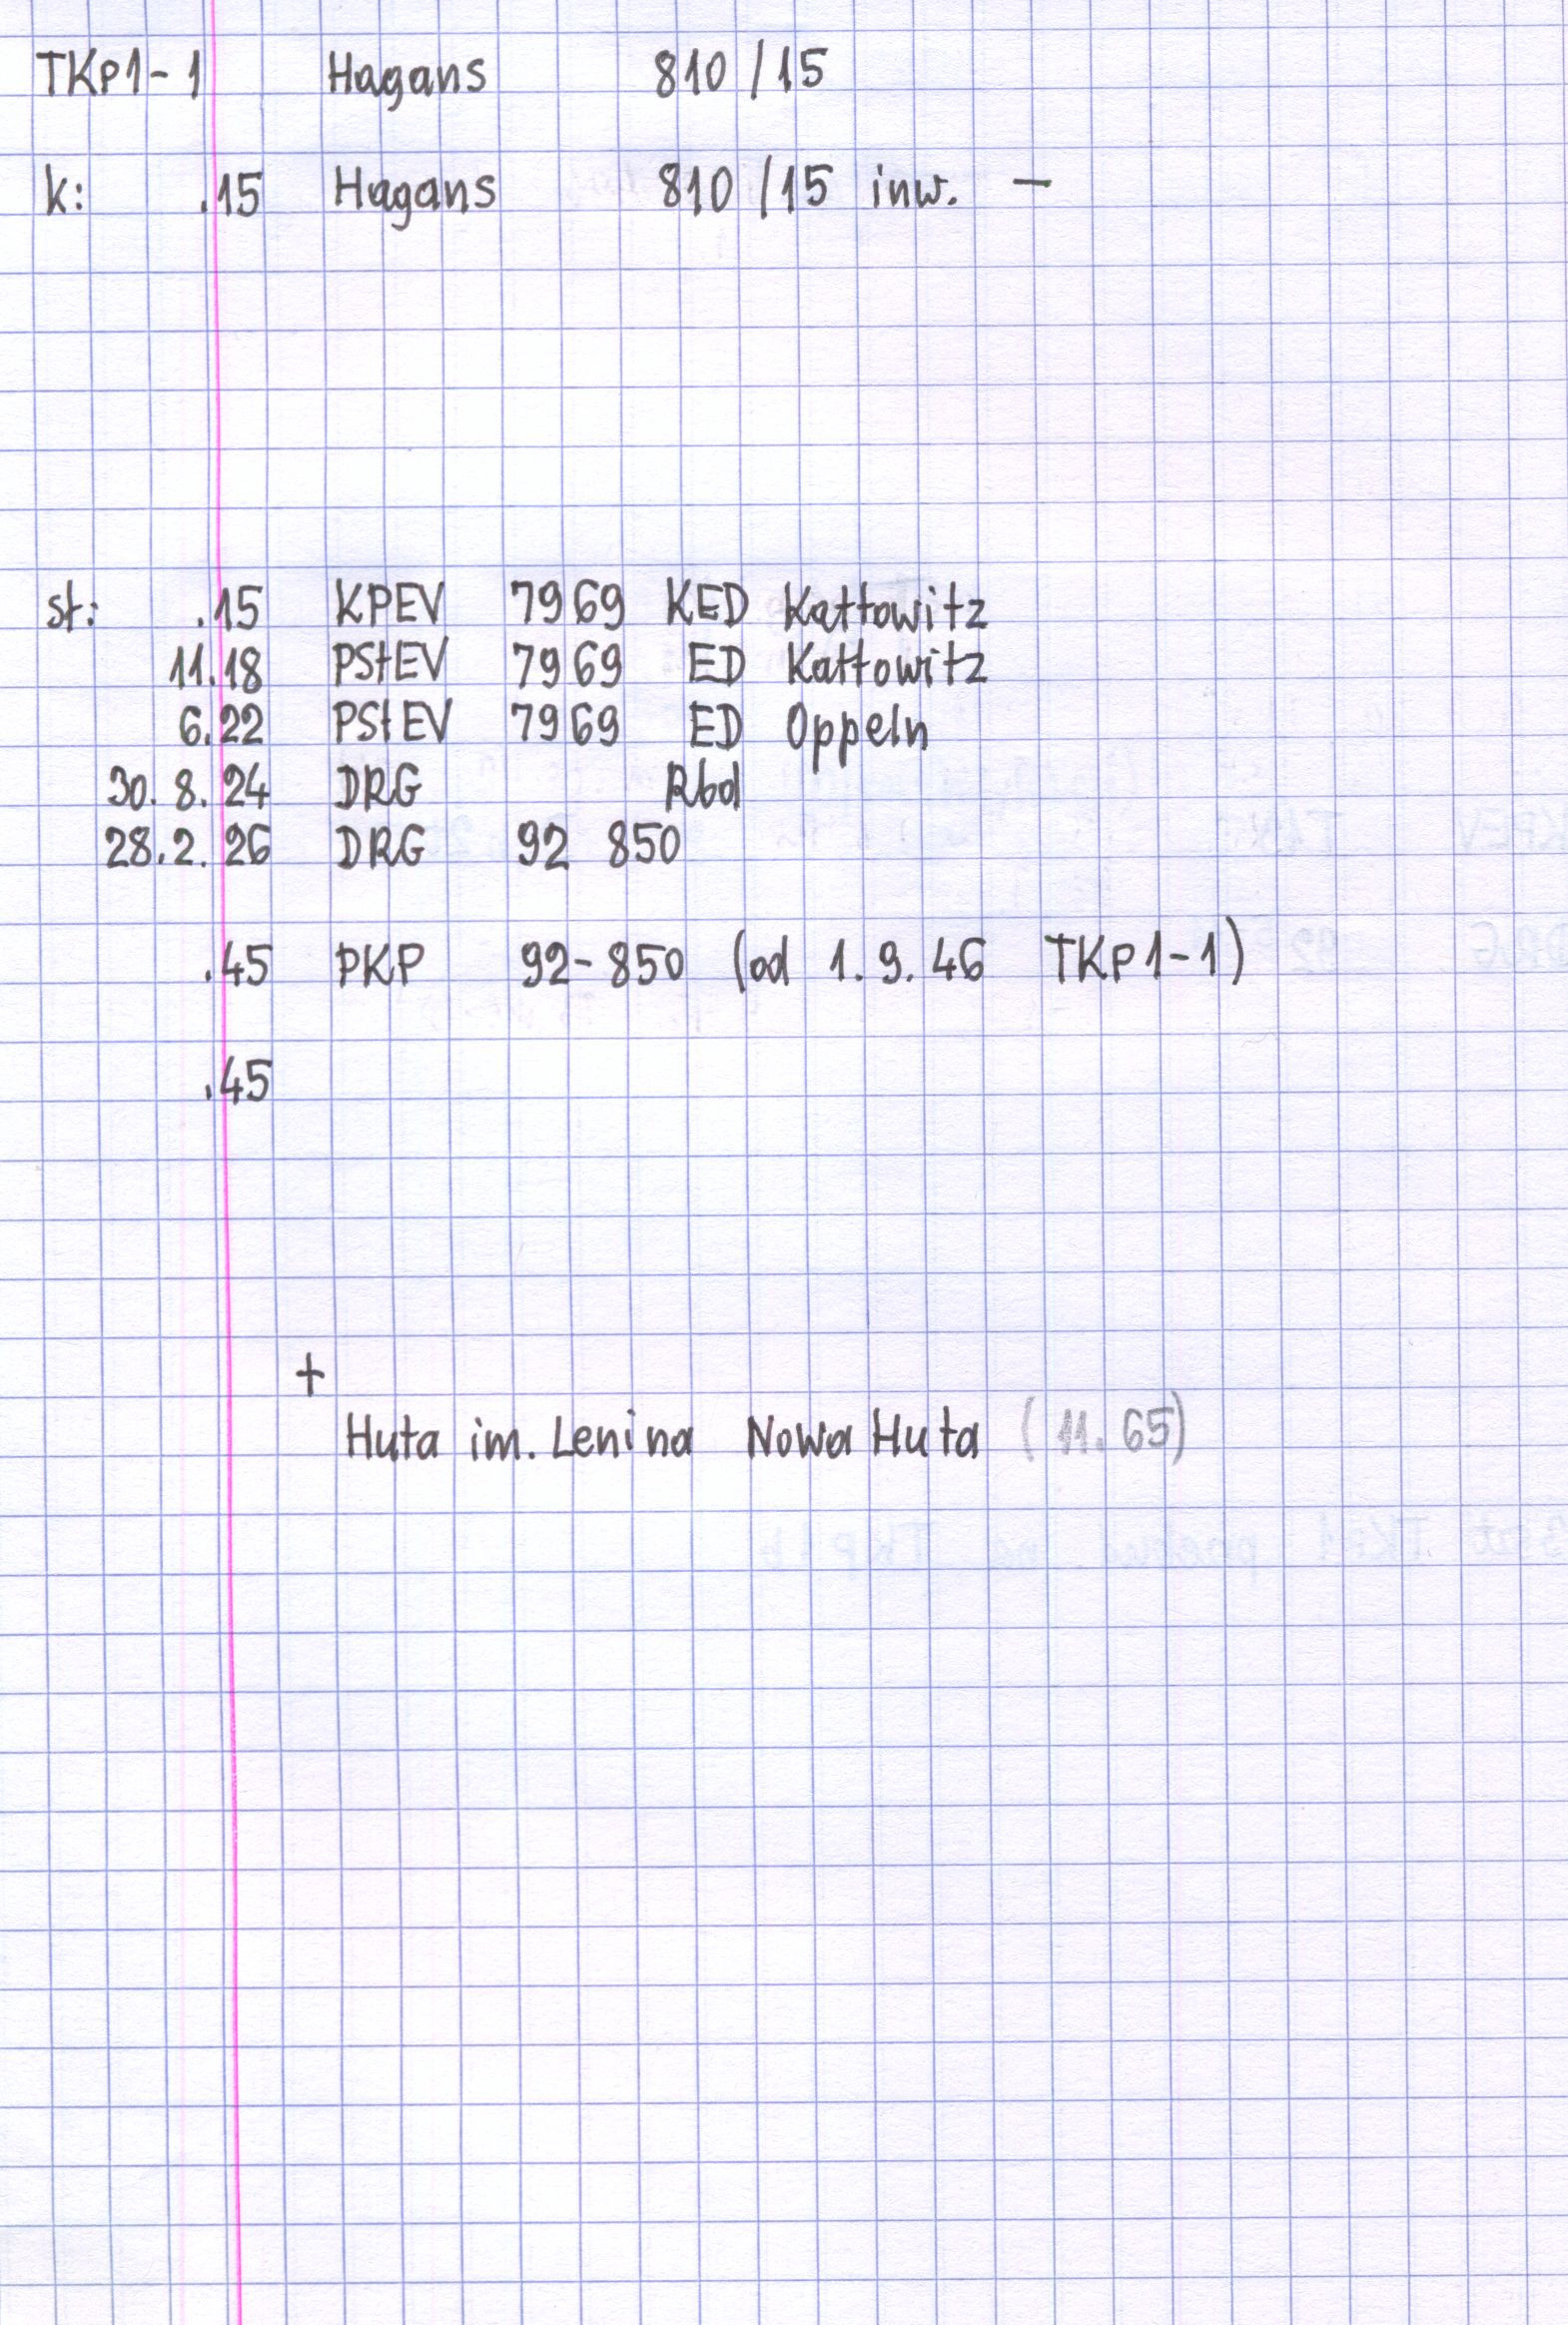 TKp1-1 Hagans 810/15
k: .15 Hagans 810/15 inw. —
st: .15 KPEV 7969 KED Kattowitz
11.18 PStEV 7969 ED Kattowitz
6.22 PStEV 7969 ED Oppeln
30.8.24 DRG Rbd
28.2.26 DRG 92 850
.45 PKP 92-850 (od 1.9.46 TKp1-1)
.45
+
Huta im. Lenina Nowa Huta (11.65)